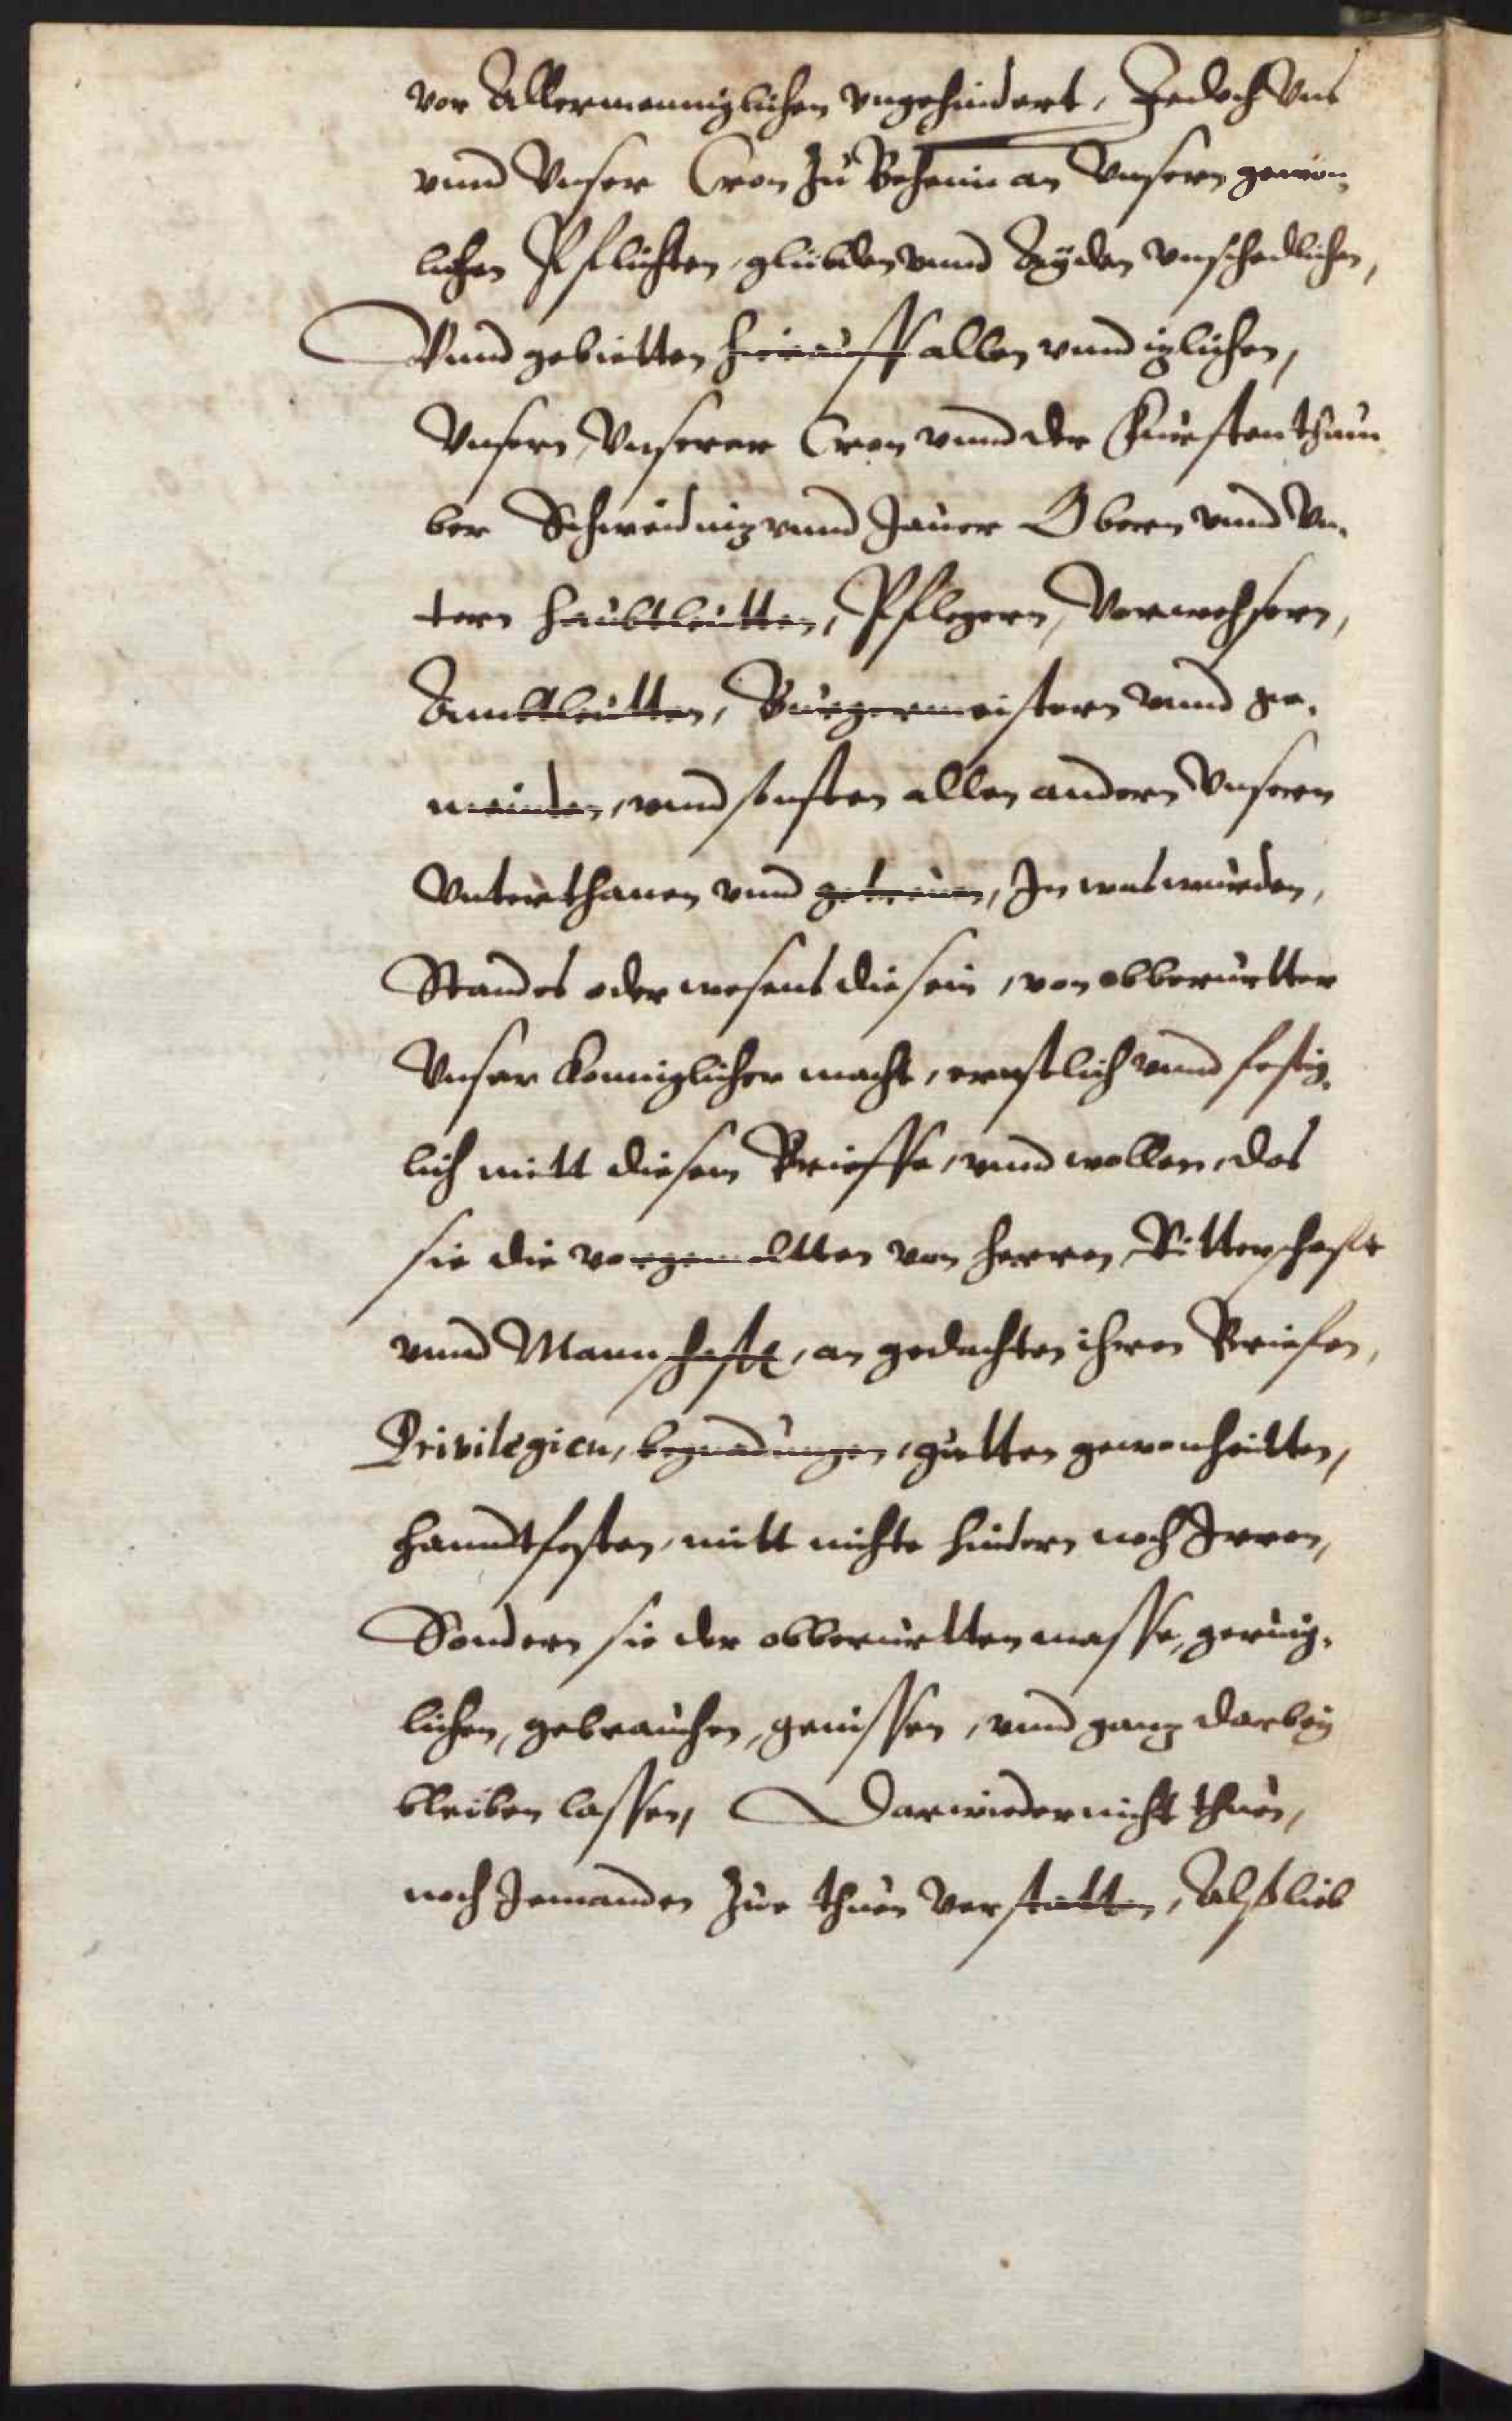 vor Allermenniglichen vngehindert, Jedoch Vns
vnnd Vnser Cron Zu Behaim an Vnsern gewon,
lichen Pflichten, glübden vnnd Ayden vnschedlichen,
Vnnd gebietten hierauff allen vnnd iglichen,
Vnsern, Vnserer Cron vnnd der Fürstenthum
ber Schweidnig vnnd Jauer Obern vnnd Vn,
tern Haubtleutten, Pflegern, Verwehsern,
Ambtleutten, Burgermeistern vnnd ge,
meinden, vnnd sonsten allen andern Vnsern
Vnterthanen vnnd getreuen, In was wurden,
Standes oder wesens die sein, von obberurtter
Vnser Konniglicher macht, ernstlich vnnd festig,
lich mitt diesem Brieffe, vnnd wollen, das
sie die vorgemeltten von Herren, Ritterschafft
vnnd Mannschafft, an gedachten ihren Briefen,
Privilegien, begnadungen, gutten gewonheitten,
Hanndtfesten, mitt nichte hindern noch Irren,
Sondern sie der obberurtten masse, gerüig,
lichen, gebrauchen, genissen, vnnd gantz darbey
bleiben lassen, Darwieder nicht thuen,
noch Jemanden Zue thuen verstatten, Alß lieb